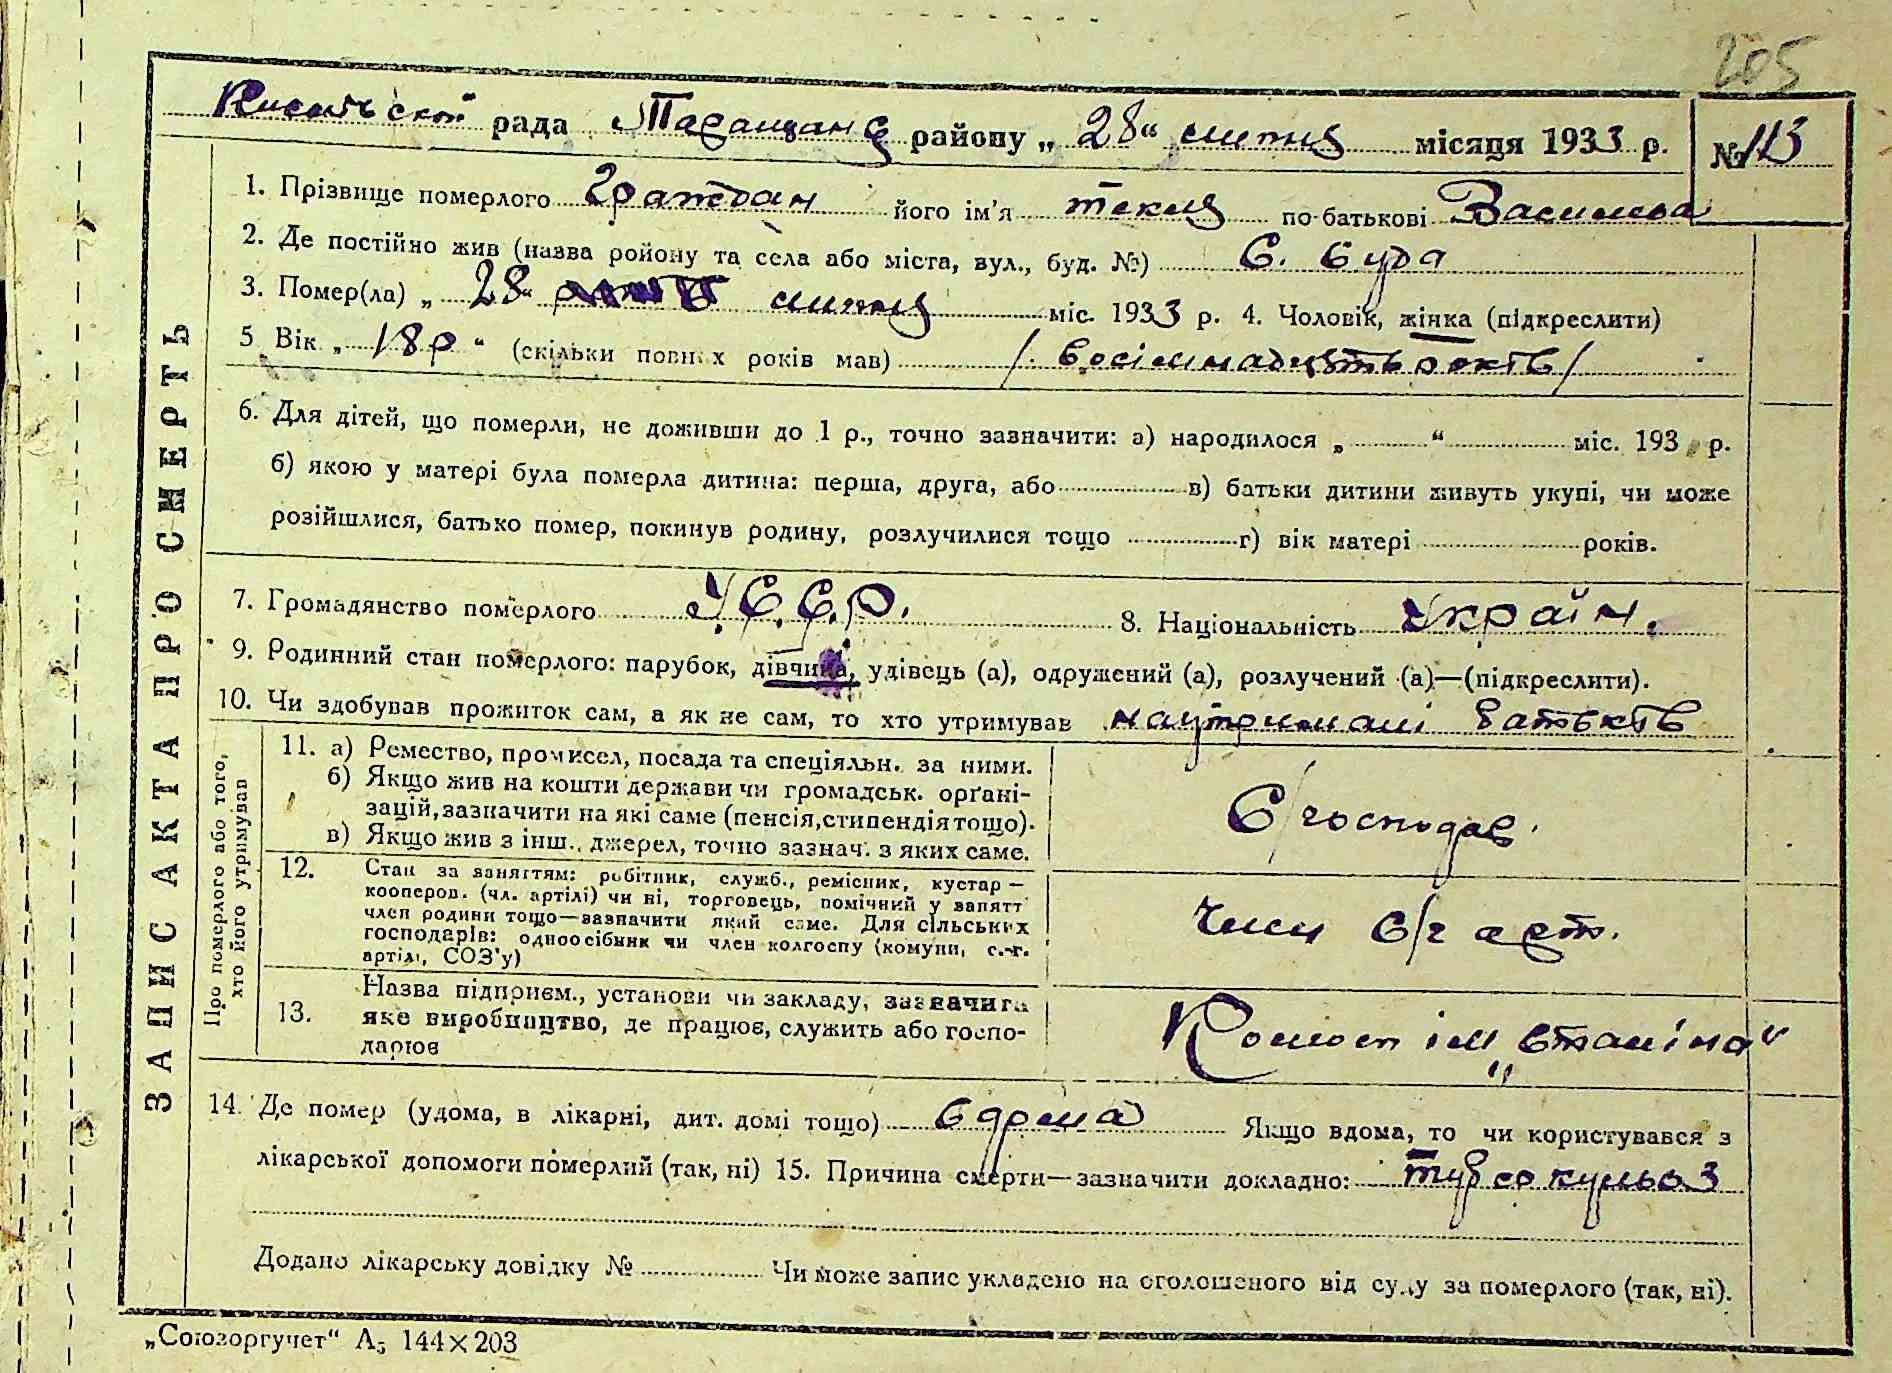 205
рада Таращанс району „ 28 “ липня місяця 1933 р. № 113
1. Прізвище померлого Граждан його ім'я Текля по-батькові Васильєва
2. Де постійно жив (назва ройону та села або міста, вул., буд. №) С. Буда
3. Помер(ла) „ 28 “ липня міс. 1933 р. 4. Чоловік, жінка (підкреслити)
5 Вік „ 18 р “ (скільки повних років мав) /восімнадцять років/
6. Для дітей, що померли, не доживши до 1 р., точно зазначити: а) народилося „ “ міс. 193 р.
б) якою у матері була померла дитина: перша, друга, або в) батьки дитини живуть укупі, чи може
розійшлися, батько помер, покинув родину, розлучилися тощо г) вік матері років.
7. Громадянство померлого У.С.С.Р. 8. Національність Україн.
9. Родинний стан померлого: парубок, дівчина, удівець (а), одружений (а), розлучений (а)—(підкреслити).
10. Чи здобував прожиток сам, а як не сам, то хто утримував наутримані батьків
ЗАПИС АКТА ПРО СМЕРТЬ
Про померлого або того,
хто його утримував
11. а) Ремество, промисел, посада та спеціяльн. за ними.
б) Якщо жив на кошти держави чи громадськ. орґані-
зацій, зазначити на які саме (пенсія, стипендія тощо).
в) Якщо жив з інш., джерел, точно зазнач. з яких саме.
С/господар.
12. Стан за заняттям: робітник, служб., ремісник, кустар —
кооперов. (чл. артілі) чи ні, торговець, помічний у занятт
член родини тощо—зазначити який саме. Для сільських
господарів: одноосібник чи член колгоспу (комуни, с.-г.
артілі, СОЗ'у)
член с/г арт.
13. Назва підприєм., установи чи закладу, зазначига
яке виробництво, де працює, служить або госпо-
дарює
Колгосп ім „Сталіна“
14. Де помер (удома, в лікарні, дит. домі тощо) вдома Якщо вдома, то чи користувався з
лікарської допомоги померлий (так, ні) 15. Причина смерти—зазначити докладно: туберкульоз
Додано лікарську довідку № Чи може запис укладено на оголошеного від суду за померлого (так, ні).
„Союзоргучет“ А5 144×203